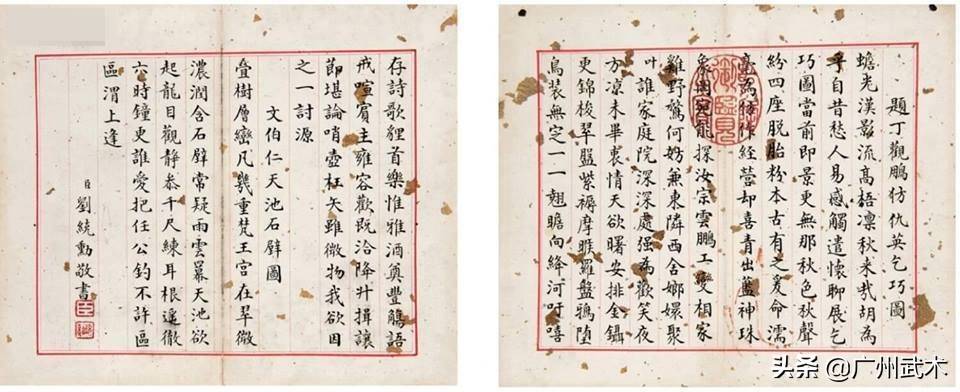 題丁觀鵬仿仇英乞巧圖
蟾光漢影流高梧凜秋来哉胡為
乎自昔愁人易感觸遣懷聊展乞
巧圖當前即景更無那秋色秋聲
紛四座脫胎粉本古有之爰命濡
毫為仿作経营却喜青出藍神珠
象罔能探汝宗雲鵬工變相家
雞野鶩何妨兼東隣西舍嫏嬛聚
叶誰家庭院深深處强為歡笑夜
方凉未畢衷情天欲曙安排金鑷
更錦梭翠盤紫褥摩睺羅盤鴉堕
鳥装無定一一翹瞻向絳河吁嘻
存詩歌貍首樂惟雅酒奠豐觴語
戒喧賓主雍容歡既洽降升揖讓
節堪論哨壺枉矢雖微物我欲因
之一討源
文伯仁天池石壁圖
疊樹層巒凡幾重梵王宫在翠微
濃潤含石壁常疑雨雲羃天池欲
起龍目觀静叅千尺練耳根遥徹
六時鐘更誰愛把任公釣不許區
區渭上逢
臣劉統勳敬書
头条 @广州武术